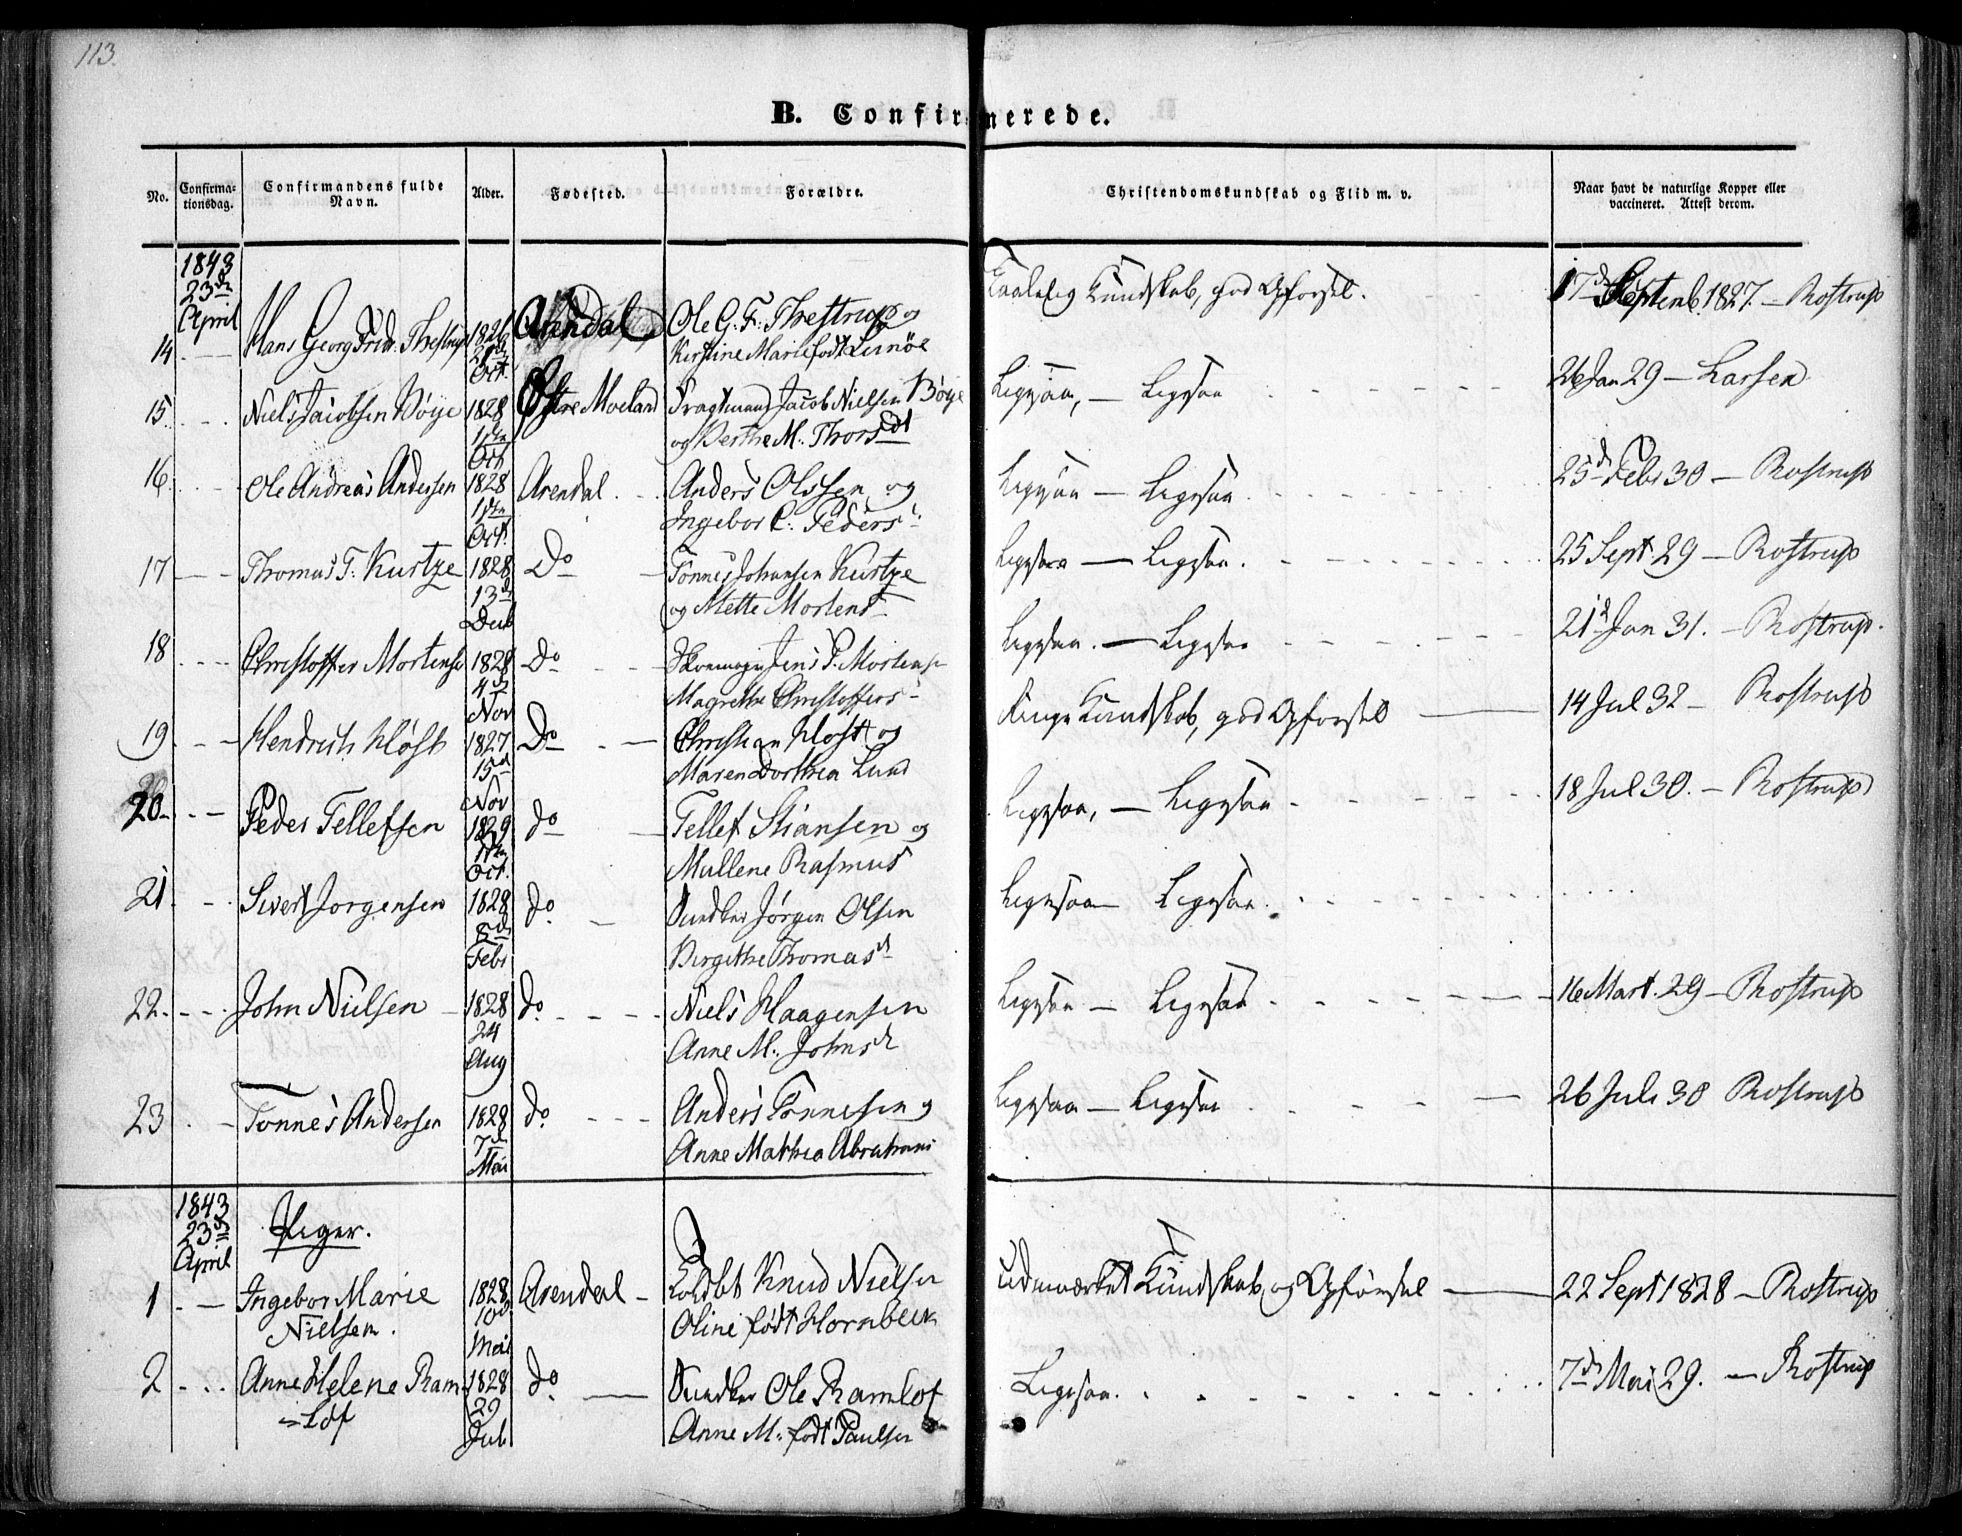 113.
B. Confirmerede.
No. Confirmationsdag. Confirmandens fulde Navn. Alder. Fødested. Forældre. Christendomskundskab og Flid m. v. Naar havt de naturlige Kopper eller vaccineret. Attest derom.
1843
23de
April
14 Hans Georg Fridr: Thestrup 1826 Arendal Ole G. F. Thestrup og Kundskab, god Opførsel. 17d Septemb. 1827. – Rostrup
Oct. Kirstine Marie født
15. Niels Jacobsen Bøye 1828 Østre Moeland Jacob Nielsen Bøye Ligesaa, – Ligesaa 26 Jan 29 – Larsen
1ste Oct og Berthe M. Thorsdt
16. Ole Andreas Andersen 1828 Arendal. Anders Olssen og Ligesaa – Ligesaa 25d Febr 30 – Rostrup
1ste Oct. Ingebor C. Peders
17 Thomas T. Kurtze 1828 Do Tønnes Johansen Kurtze Ligesaa – Ligesaa. 25 Sept. 29 – Rostrup
13d og Mette Mortensd
18 Christoffer Mortensen 1828 Do Jens P. Mortensen Ligesaa. – Ligesaa 21d Jan 31. – Rostrup.
4d Nov Magrethe Christoffers
19. Hendrich Kløft 1827 Do Christian Kløft og Kundskab, god Opførsel 14 Jul 32 – Rostrup
15d Nov Maren Dorthea Lund
20. Peder Tellefsen 1829 do Tellef Stiansen og Ligesaa, – Ligesaa 18 Jul 30. – Rostrup
Oct. Mallene Rasmusd
21. Sivert Jørgensen 1828 do. Jørgen Olsen Ligesaa – Ligesaa.
8de Febr Birgithe Thomasd
22. John Nielsen 1828 do. Niels Haagensen Ligesaa – Ligesaa 16 Mart. 29 – Rostrup
24 Aug Anne M. Johnsd
23 Tønnes Andersen 1828 do. Anders Tønnesen og Ligesaa – Ligesaa 26 Juli 30 Rostrup
7d Mai Anne Mathea Abrahams
1843
23de
April
Piger.
1. Ingebor Marie Nielsen. 1828 Arendal – Knud Nielsen Udmærket Kundskab, og Opførsel 22 Sept 1828 – Rostrup
10d Mai Oline født Hornbeck
2 Anne Helene Ramløf 1828 do. Ole Ramløf Ligesaa. 7d Mai 29. – Rostrup
29 Jul Anne M. født Paulsen